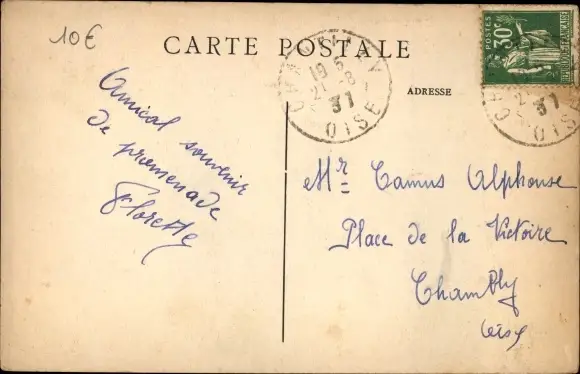 10€
CARTE POSTALE
ADRESSE
POSTES
30c
19 5
21 - 8
37
OISE
37
OISE
Amical souvenir
de promenade
Florette
Mr Camus Alphonse
Place de la Victoire
Chambly
Oise